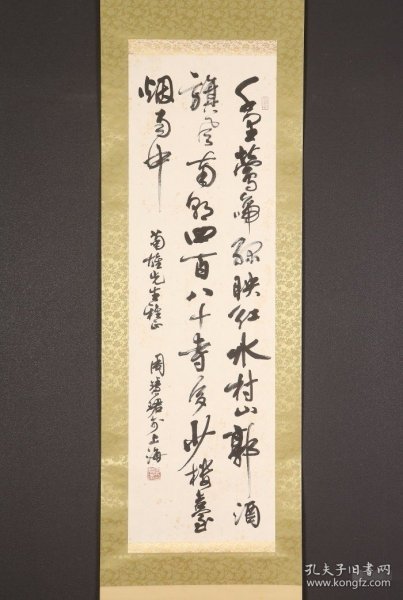 千里莺啼绿映红水村山郭酒
旗风南朝四百八十寺多少楼台
烟雨中
菊雄先生雅正
周慧珺于上海
孔夫子旧书网
www.kongfz.com